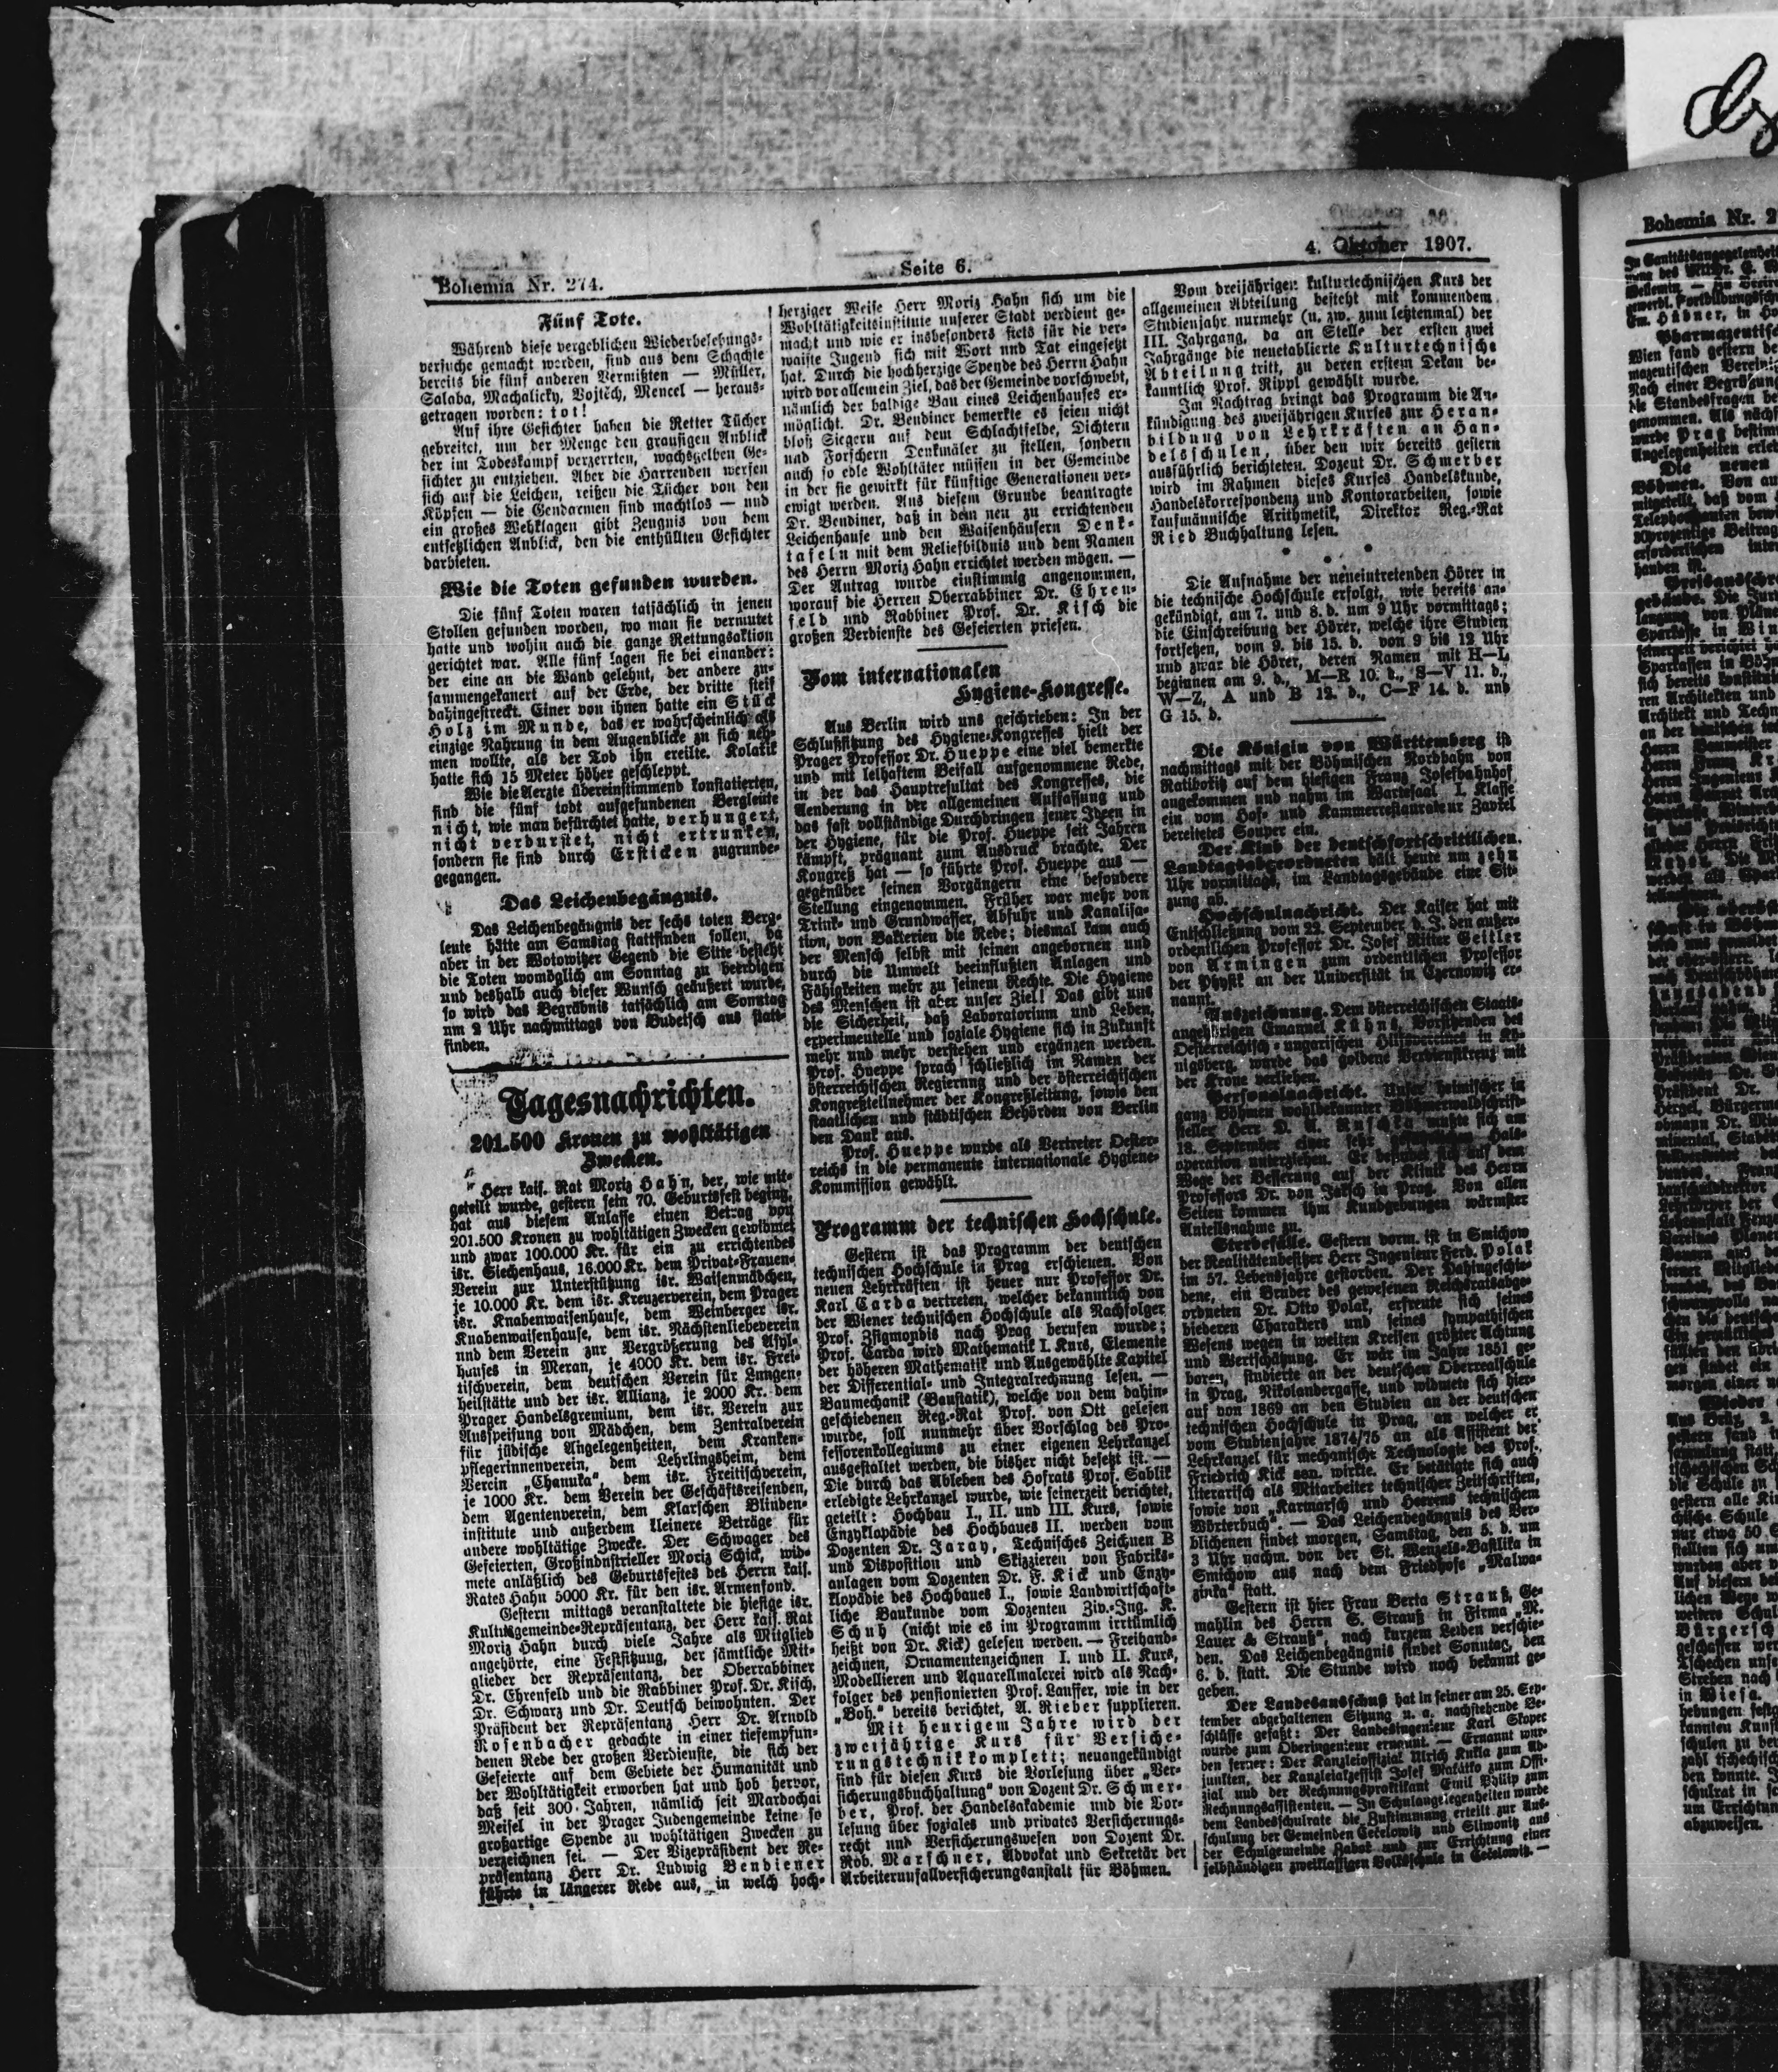 Bohemia Nr. 274.
Seite 6.
4. Oktober 1907.
Fünf Tote.
Während diese vergeblichen Wiederbelebungs-
versuche gemacht werden, sind aus dem Schachte
bereits die fünf anderen Vermißten — Müller,
Salaba, Machalicky, Vojtěch, Mencel — heraus-
getragen worden: tot!
Auf ihre Gesichter haben die Retter Tücher
gebreitet, um der Menge den grausigen Anblick
der im Todeskampf verzerrten, wachsgelben Ge-
sichter zu entziehen. Aber die Harrenden werfen
sich auf die Leichen, reißen die Tücher von den
Köpfen — die Gendarmen sind machtlos — und
ein großes Wehklagen gibt Zeugnis von dem
entsetzlichen Anblick, den die enthüllten Gesichter
darbieten.
Wie die Toten gefunden wurden.
Die fünf Toten waren tatsächlich in jenen
Stollen gefunden worden, wo man sie vermutet
hatte und wohin auch die ganze Rettungsaktion
gerichtet war. Alle fünf lagen sie bei einander:
der eine an die Wand gelehnt, der andere zu-
sammengekauert auf der Erde, der dritte steif
dahingestreckt. Einer von ihnen hatte ein Stück
Holz im Munde, das er wahrscheinlich als
einzige Nahrung in dem Augenblicke zu sich neh-
men wollte, als der Tod ihn ereilte. Kolatik
hatte sich 15 Meter höher geschleppt.
Wie die Aerzte übereinstimmend konstatierten,
sind die fünf todt aufgefundenen Bergleute
nicht, wie man befürchtet hatte, verhungert,
nicht verdurstet, nicht ertrunken,
sondern sie sind durch Ersticken zugrunde-
gegangen.
Das Leichenbegängnis.
Das Leichenbegängnis der sechs toten Berg-
leute hätte am Samstag stattfinden sollen, da
aber in der Wotowitzer Gegend die Sitte besteht
die Toten womöglich am Sonntag zu beerdigen
und deshalb auch dieser Wunsch geäußert wurde,
so wird das Begräbnis tatsächlich am Sonntag
um 2 Uhr nachmittags von Budetsch aus statt-
finden.
Tagesnachrichten.
201.500 Kronen zu wohltätigen
Zwecken.
Herr kais. Rat Moriz Hahn, der, wie mit-
geteilt wurde, gestern sein 70. Geburtsfest beging,
hat aus diesem Anlasse einen Betrag von
201.500 Kronen zu wohltätigen Zwecken gewidmet
und zwar 100.000 Kr. für ein zu errichtendes
isr. Siechenhaus, 16.000 Kr. dem Privat-Frauen-
Verein zur Unterstützung isr. Waisenmädchen,
je 10.000 Kr. dem isr. Kreuzerverein, dem Prager
isr. Knabenwaisenhause, dem Weinberger isr.
Knabenwaisenhause, dem isr. Nächstenliebeverein
und dem Verein zur Vergrößerung des Asyl-
hauses in Meran, je 4000 Kr. dem isr. Frei-
tischverein, dem deutschen Verein für Lungen-
heilstätte und der isr. Allianz, je 2000 Kr. dem
Prager Handelsgremium, dem isr. Verein zur
Ausspeisung von Mädchen, dem Zentralverein
für jüdische Angelegenheiten, dem Kranken-
pflegerinnenverein, dem Lehrlingsheim, dem
Verein „Chanuka“, dem isr. Freitischverein,
je 1000 Kr. dem Verein der Geschäftsreisenden,
dem Agentenverein, dem Klarschen Blinden-
institute und außerdem kleinere Beträge für
andere wohltätige Zwecke. Der Schwager des
Gefeierten, Großindustrieller Moriz Schick, wid-
mete anläßlich des Geburtsfestes des Herrn kais.
Rates Hahn 5000 Kr. für den isr. Armenfond.
Gestern mittags veranstaltete die hiesige isr.
Kultusgemeinde-Repräsentanz, der Herr kais. Rat
Moriz Hahn durch viele Jahre als Mitglied
angehörte, eine Festsitzung, der sämtliche Mit-
glieder der Repräsentanz, der Oberrabbiner
Dr. Ehrenfeld und die Rabbiner Prof. Dr. Kisch,
Dr. Schwarz und Dr. Deutsch beiwohnten. Der
Präsident der Repräsentanz Herr Dr. Arnold
Rosenbacher gedachte in einer tiefempfun-
denen Rede der großen Verdienste, die sich der
Gefeierte auf dem Gebiete der Humanität und
der Wohltätigkeit erworben hat und hob hervor,
daß seit 300 Jahren, nämlich seit Mardochai
Meisel in der Prager Judengemeinde keine so
großartige Spende zu wohltätigen Zwecken zu
verzeichnen sei. — Der Vizepräsident der Re-
präsentanz Herr Dr. Ludwig Bendiener
führte in längerer Rede aus, in welch hoch-
herziger Weise Herr Moriz Hahn sich um die
Wohltätigkeitsinstitute unserer Stadt verdient ge-
macht und wie er insbesonders stets für die ver-
waiste Jugend sich mit Wort und Tat eingesetzt
hat. Durch die hochherzige Spende des Herrn Hahn
wird vor allem ein Ziel, das der Gemeinde vorschwebt,
nämlich der baldige Bau eines Leichenhauses er-
möglicht. Dr. Bendiner bemerkte es seien nicht
bloß Siegern auf dem Schlachtfelde, Dichtern
und Forschern Denkmäler zu stellen, sondern
auch so edle Wohltäter müssen in der Gemeinde
in der sie gewirkt für künftige Generationen ver-
ewigt werden. Aus diesem Grunde beantragte
Dr. Bendiner, daß in dem neu zu errichtenden
Leichenhause und den Waisenhäusern Denk-
tafeln mit dem Reliefbildnis und dem Namen
des Herrn Moriz Hahn errichtet werden mögen. —
Der Antrag wurde einstimmig angenommen,
worauf die Herren Oberrabbiner Dr. Ehren-
feld und Rabbiner Prof. Dr. Kisch die
großen Verdienste des Gefeierten priesen.
Vom internationalen
Hygiene-Kongresse.
Aus Berlin wird uns geschrieben: In der
Schlußsitzung des Hygiene-Kongresses hielt der
Prager Professor Dr. Hueppe eine viel bemerkte
und mit lebhaftem Beifall aufgenommene Rede,
in der das Hauptresultat des Kongresses, die
Aenderung in der allgemeinen Auffassung und
das fast vollständige Durchbringen jener Ideen in
der Hygiene, für die Prof. Hueppe seit Jahren
kämpft, prägnant zum Ausdruck brachte. Der
Kongreß hat — so führte Prof. Hueppe aus —
gegenüber seinen Vorgängern eine besondere
Stellung eingenommen. Früher war mehr von
Trink- und Grundwasser, Abfuhr und Kanalisa-
tion, von Bakterien die Rede; diesmal kam auch
der Mensch selbst mit seinen angebornen und
durch die Umwelt beeinflußten Anlagen und
Fähigkeiten mehr zu seinem Rechte. Die Hygiene
des Menschen ist aber unser Ziel! Das gibt uns
die Sicherheit, daß Laboratorium und Leben,
experimentelle und soziale Hygiene sich in Zukunft
mehr und mehr verstehen und ergänzen werden.
Prof. Hueppe sprach schließlich im Namen der
österreichischen Regierung und der österreichischen
Kongreßteilnehmer der Kongreßleitung, sowie den
staatlichen und städtischen Behörden von Berlin
den Dank aus.
Prof. Hueppe wurde als Vertreter Oester-
reichs in die permanente internationale Hygiene-
Kommission gewählt.
Programm der technischen Hochschule.
Gestern ist das Programm der deutschen
technischen Hochschule in Prag erschienen. Von
neuen Lehrkräften ist heuer nur Professor Dr.
Karl Carda vertreten, welcher bekanntlich von
der Wiener technischen Hochschule als Nachfolger
Prof. Zsigmondis nach Prag berufen wurde;
Prof. Carda wird Mathematik I. Kurs, Elemente
der höheren Mathematik und Ausgewählte Kapitel
der Differential- und Integralrechnung lesen. —
Baumechanik (Baustatik), welche von dem dahin-
geschiedenen Reg.-Rat Prof. von Ott gelesen
wurde, soll nunmehr über Vorschlag des Pro-
fessorenkollegiums zu einer eigenen Lehrkanzel
ausgestaltet werden, die bisher nicht besetzt ist. —
Die durch das Ableben des Hofrats Prof. Sablik
erledigte Lehrkanzel wurde, wie seinerzeit berichtet,
geteilt: Hochbau I., II. und III. Kurs, sowie
Enzyklopädie des Hochbaues II. werden vom
Dozenten Dr. Jaray, Technisches Zeichnen B
und Disposition und Skizzieren von Fabriks-
anlagen vom Dozenten Dr. F. Kick und Enzy-
klopädie des Hochbaues I., sowie Landwirtschaft-
liche Baukunde vom Dozenten Ziv.-Ing. K.
Schuh (nicht wie es im Programm irrtümlich
heißt von Dr. Kick) gelesen werden. — Freihand-
zeichnen, Ornamentenzeichnen I. und II. Kurs,
Modellieren und Aquarellmalerei wird als Nach-
folger des pensionierten Prof. Lauffer, wie in der
„Boh.“ bereits berichtet, A. Rieber supplieren.
Mit heurigem Jahre wird der
zweijährige Kurs für Versiche-
rungstechnik komplett; neuangekündigt
sind für diesen Kurs die Vorlesung über „Ver-
sicherungsbuchhaltung“ von Dozent Dr. Schmer-
ber, Prof. der Handelsakademie und die Vor-
lesung über soziales und privates Versicherungs-
recht und Versicherungswesen von Dozent Dr.
Rob. Marschner, Advokat und Sekretär der
Arbeiterunfallversicherungsanstalt für Böhmen.
Vom dreijährigen kulturtechnischen Kurs der
allgemeinen Abteilung besteht mit kommendem
Studienjahr nurmehr (u. zw. zum letztenmal) der
III. Jahrgang, da an Stelle der ersten zwei
Jahrgänge die neuetablierte Kulturtechnische
Abteilung tritt, zu deren erstem Dekan be-
kanntlich Prof. Rippl gewählt wurde.
Im Nachtrag bringt das Programm die An-
kündigung des zweijährigen Kurses zur Heran-
bildung von Lehrkräften an Han-
delsschulen, über den wir bereits gestern
ausführlich berichteten. Dozent Dr. Schmerber
wird im Rahmen dieses Kurses Handelskunde,
Handelskorrespondenz und Kontorarbeiten, sowie
kaufmännische Arithmetik, Direktor Reg.-Rat
Ried Buchhaltung lesen.
* * *
Die Aufnahme der neueintretenden Hörer in
die technische Hochschule erfolgt, wie bereits an-
gekündigt, am 7. und 8. d. um 9 Uhr vormittags;
die Einschreibung der Hörer, welche ihre Studien
fortsetzen, vom 9. bis 15. d. von 9 bis 12 Uhr
und zwar die Hörer, deren Namen mit H—L
beginnen am 9. d., M—R 10. d., S—V 11. d.,
W—Z, A und B 12. d., C—F 14. d. und
G 15. d.
Die Königin von Württemberg ist
nachmittags mit der Böhmischen Nordbahn von
Ratiboritz auf dem hiesigen Franz Josefbahnhof
angekommen und nahm im Wartesaal I. Klasse
ein vom Hof- und Kammerrestaurateur Zavrel
bereitetes Souper ein.
Der Klub der deutschfortschrittlichen
Landtagsabgeordneten hält heute um zehn
Uhr vormittags, im Landtagsgebäude eine Sit-
zung ab.
Hochschulnachricht. Der Kaiser hat mit
Entschließung vom 22. September d. J. den außer-
ordentlichen Professor Dr. Josef Ritter Geitler
von Armingen zum ordentlichen Professor
der Physik an der Universität in Czernowitz er-
nannt.
Auszeichnung. Dem österreichischen Staats-
angehörigen Emanuel Kühns, Vorsitzenden des
Oesterreichisch-ungarischen Hilfsvereines in Kö-
nigsberg, wurde das goldene Verdienstkreuz mit
der Krone verliehen.
Personalnachricht. Unser heimischer in
ganz Böhmen wohlbekannter Böhmerwaldschrift-
steller Herr mußte sich am
18. September einer sehr Hals-
operation unterziehen. Er befindet sich auf dem
Wege der Besserung auf der Klinik des Herrn
Professors Dr. von Jaksch in Prag. Von allen
Seiten kommen ihm Kundgebungen wärmster
Anteilnahme zu.
Sterbefälle. Gestern vorm. ist in Smichow
der Realitätenbesitzer Herr Ingenieur Ferd. Polak
im 57. Lebensjahre gestorben. Der Dahingeschie-
dene, ein Bruder des gewesenen Reichsratsabge-
ordneten Dr. Otto Polak, erfreute sich seines
biederen Charakters und seines sympathischen
Wesens wegen in weiten Kreisen größter Achtung
und Wertschätzung. Er war im Jahre 1851 ge-
boren, studierte an der deutschen Oberrealschule
in Prag, Nikolandergasse, und widmete sich hier-
auf von 1869 an den Studien an der deutschen
technischen Hochschule in Prag, an welcher er
vom Studienjahre 1874/75 an als Assistent der
Lehrkanzel für mechanische Technologie des Prof.
Friedrich Kick sen. wirkte. Er betätigte sich auch
literarisch als Mitarbeiter technischer Zeitschriften,
sowie von „Karmarsch und Heerens technischem
Wörterbuch“. — Das Leichenbegängnis des Ver-
blichenen findet morgen, Samstag, den 5. d. um
3 Uhr nachm. von der St. Wenzels-Basilika in
Smichow aus nach dem Friedhofe „Malwa-
zinka“ statt.
Gestern ist hier Frau Berta Strauß, Ge-
mahlin des Herrn S. Strauß in Firma „M.
Lauer & Strauß“, nach kurzem Leiden verschie-
den. Das Leichenbegängnis findet Sonntag, den
6. d. statt. Die Stunde wird noch bekannt ge-
geben.
Der Landesausschuß hat in seiner am 25. Sep-
tember abgehaltenen Sitzung u. a. nachstehende Be-
schlüsse gefaßt: Der Landesingenieur Karl Skopec
wurde zum Oberingenieur ernannt. — Ernannt wur-
den ferner: Der Kanzleioffizial Ulrich Kukla zum Ad-
junkten, der Kanzleiakzessist Josef Makatko zum Offi-
zial und der Rechnungspraktikant Emil Philip zum
Rechnungsassistenten. — In Schulangelegenheiten wurde
dem Landesschulrate die Zustimmung erteilt zur Aus-
schulung der Gemeinden Cečelowitz und Sliwonitz aus
der Schulgemeinde Zabor und zur Errichtung einer
selbständigen zweiklassigen Volksschule in Cečelowitz. —
Bohemia Nr. 2